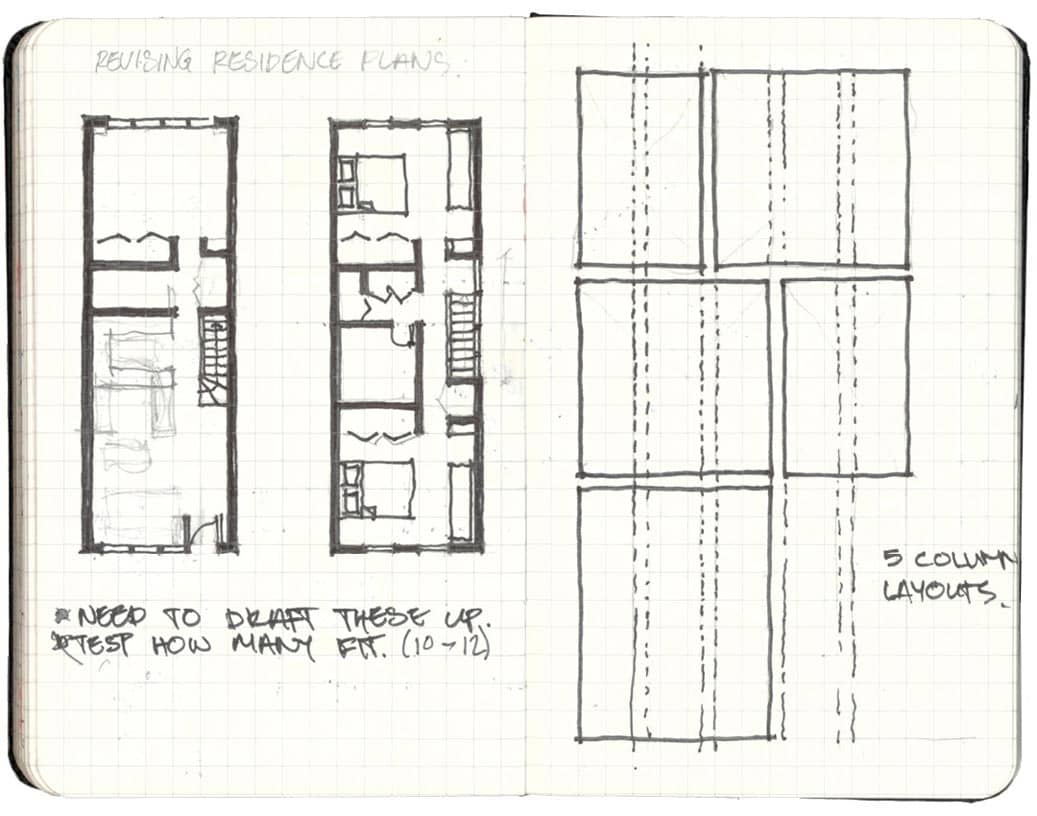 REVISING RESIDENCE PLANS.
*NEED TO DRAFT THESE UP.
*TEST HOW MANY FIT. (10-12)
5 COLUMN
LAYOUTS.